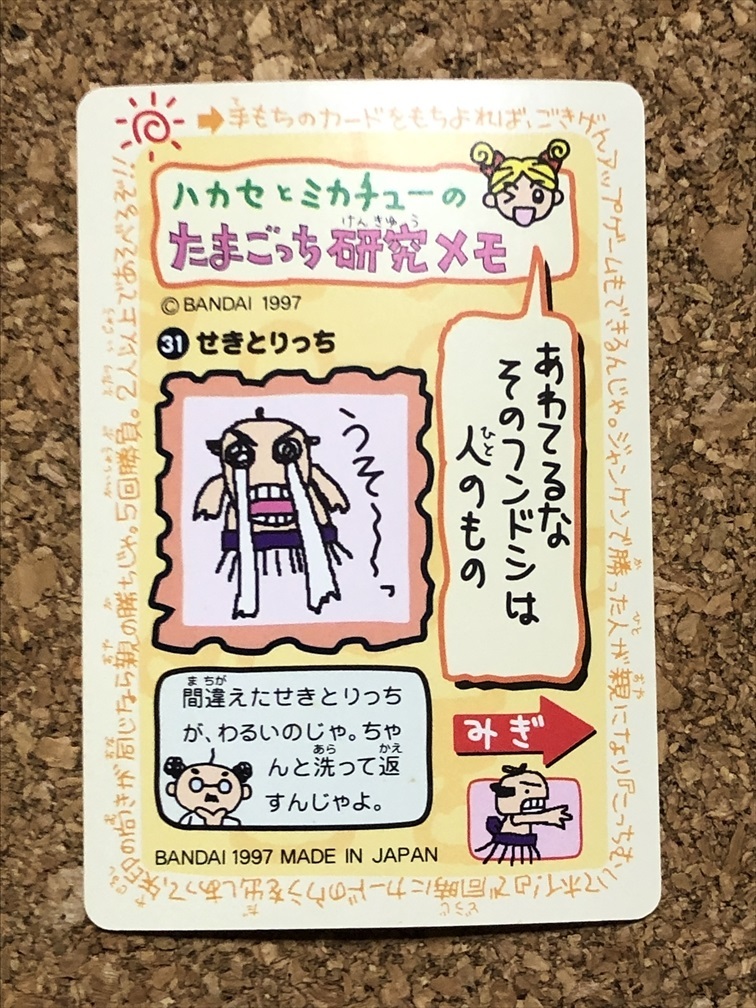 ➡手もちのカードをもちよれば、ごきげんアップゲームもできるんじゃ。ジャンケンで勝った人が親になり『こっちむいてホイ!』で同時にカードのウラを出しあって、矢印の向きが同じなら親の勝ちじゃ。5回勝負。2人以上であそべるぞ!!
ハカセとミカチューの
けんきゅう
たまごっち研究メモ
©BANDAI 1997
31 せきとりっち
うそ〜〜っ
あわてるな
そのフンドシは
ひと
人のもの
まちが
間違えたせきとりっち
が、わるいのじゃ。ちゃ
あら かえ
んと洗って返
すんじゃよ。
みぎ
BANDAI 1997 MADE IN JAPAN